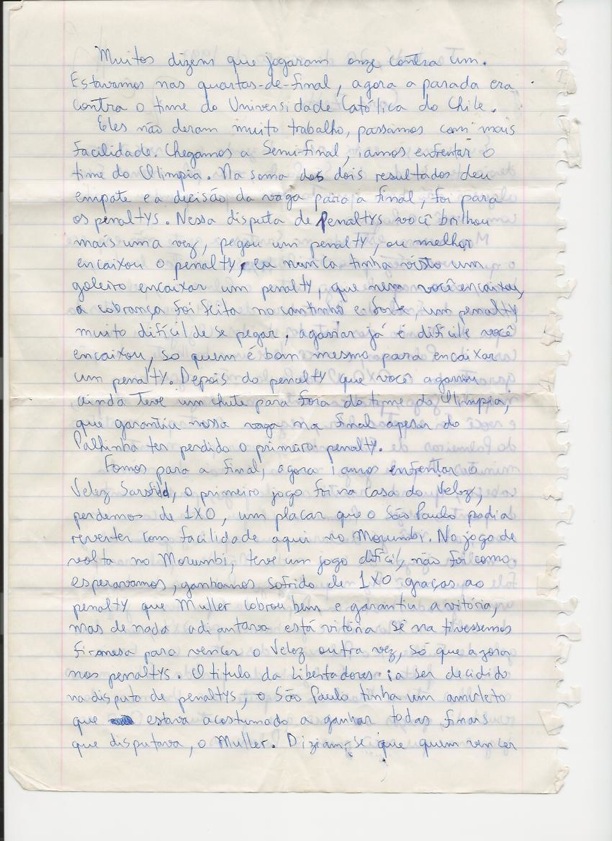 Muitos dizem que jogaram onze contra um.
Estavamos nas quartas-de-final, agora a parada era
contra o time do Universidade Católica do Chile.
Eles não deram muito trabalho, passamos com mais
facilidade. Chegamos a Semi-Final, iamos enfrentar o
time do Olimpia. Na soma dos dois resultados deu
empate e a decisão da vaga para a final, foi para
os penaltys. Nessa disputa de Penaltys você brilhou
mais uma vez, pegou um penalty, ou melhor
encaixou o penalty, eu nunca tinha visto um
goleiro encaixar um penalty, que nem você encaixou,
a cobrança foi feita no cantinho e forte, um penalty
muito difícil de se pegar, agarrar já é difícil e você
encaixou, so quem é bom mesmo para encaixar
um penalty. Depois do penalty que você agarrou
ainda teve um chute para fora do time do Olimpia,
que garantia nossa vaga na final apesar do
Palhinha ter perdido o primeiro penalty.
Fomos para a final, agora iamos enfrentar o
Velez Sarsfild, o primeiro jogo foi na casa do Velez,
perdemos de 1X0, um placar que o São Paulo podia
reverter com facilidade aqui no Morumbi. No jogo de
volta no Morumbi, teve um jogo difícil, não foi como
esperavamos, ganhamos sofrido de 1X0 graças ao
penalty que Muller cobrou bem e garantiu a vitória,
mas de nada adiantava está vitória se na tivessemos
firmesa para vencer o Velez outra vez, só que agora
nos penaltys. O titulo da Libertadores ia ser decidido
na disputa de penaltys, o São Paulo tinha um amuleto
que estava acostumado a ganhar todas finais
que disputava, o Muller. Diziam-se que quem vencer